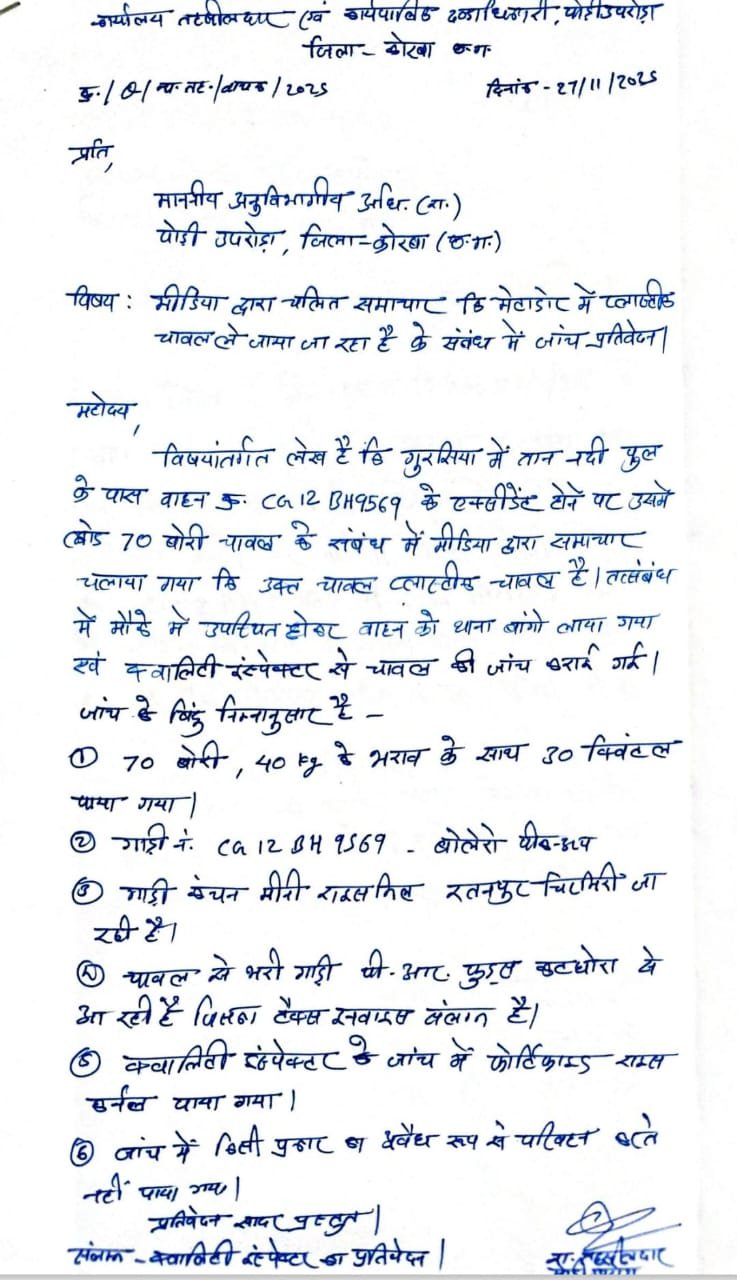 कार्यालय तहसीलदार एवं कार्यपालिक दण्डाधिकारी, पोड़ीउपरोड़ा
जिला- कोरबा छ.ग.
क्र./Q/न्या.तह./वाचक/2025 दिनांक - 27/11/2025
प्रति,
माननीय अनुविभागीय अधि. (रा.)
पोड़ी उपरोड़ा, जिला-कोरबा (छ.ग.)
विषय : मीडिया द्वारा चलित समाचार कि मेटाडोर में प्लास्टीक
चावल ले जाया जा रहा है के संबंध में जांच प्रतिवेदन।
महोदय,
विषयांतर्गत लेख है कि गुरसिया में तान नदी पुल
के पास वाहन क्र. CG 12 BH9569 के एक्सीडेंट होने पर उसमें
लोड 70 बोरी चावल के संबंध में मीडिया द्वारा समाचार
चलाया गया कि उक्त चावल प्लास्टीक चावल है। तत्संबंध
में मौके में उपस्थित होकर वाहन को थाना बांगो लाया गया
एवं क्वालिटी इंस्पेक्टर से चावल की जांच कराई गई।
जांच के बिंदु निम्नानुसार है -
① 70 बोरी, 40 kg के भराव के साथ 30 क्विंटल
पाया गया।
② गाड़ी नं. CG 12 BH 9569 - बोलेरो पीक-अप
③ गाड़ी कंचन मीनी राइसमिल रतनपुर-चिरमिरी जा
रही है।
④ चावल से भरी गाड़ी पी.आर. फुड्स कटघोरा से
आ रही है जिसका टैक्स इनवाइस संलग्न है।
⑤ क्वालिटी इंस्पेक्टर के जांच में फोर्टिफाइड राइस
कर्नल पाया गया।
⑥ जांच में किसी प्रकार का अवैध रूप से परिवहन करते
नहीं पाया गया।
प्रतिवेदन सादर प्रस्तुत।
संलग्न - क्वालिटी इंस्पेक्टर का प्रतिवेदन। ना. तहसीलदार